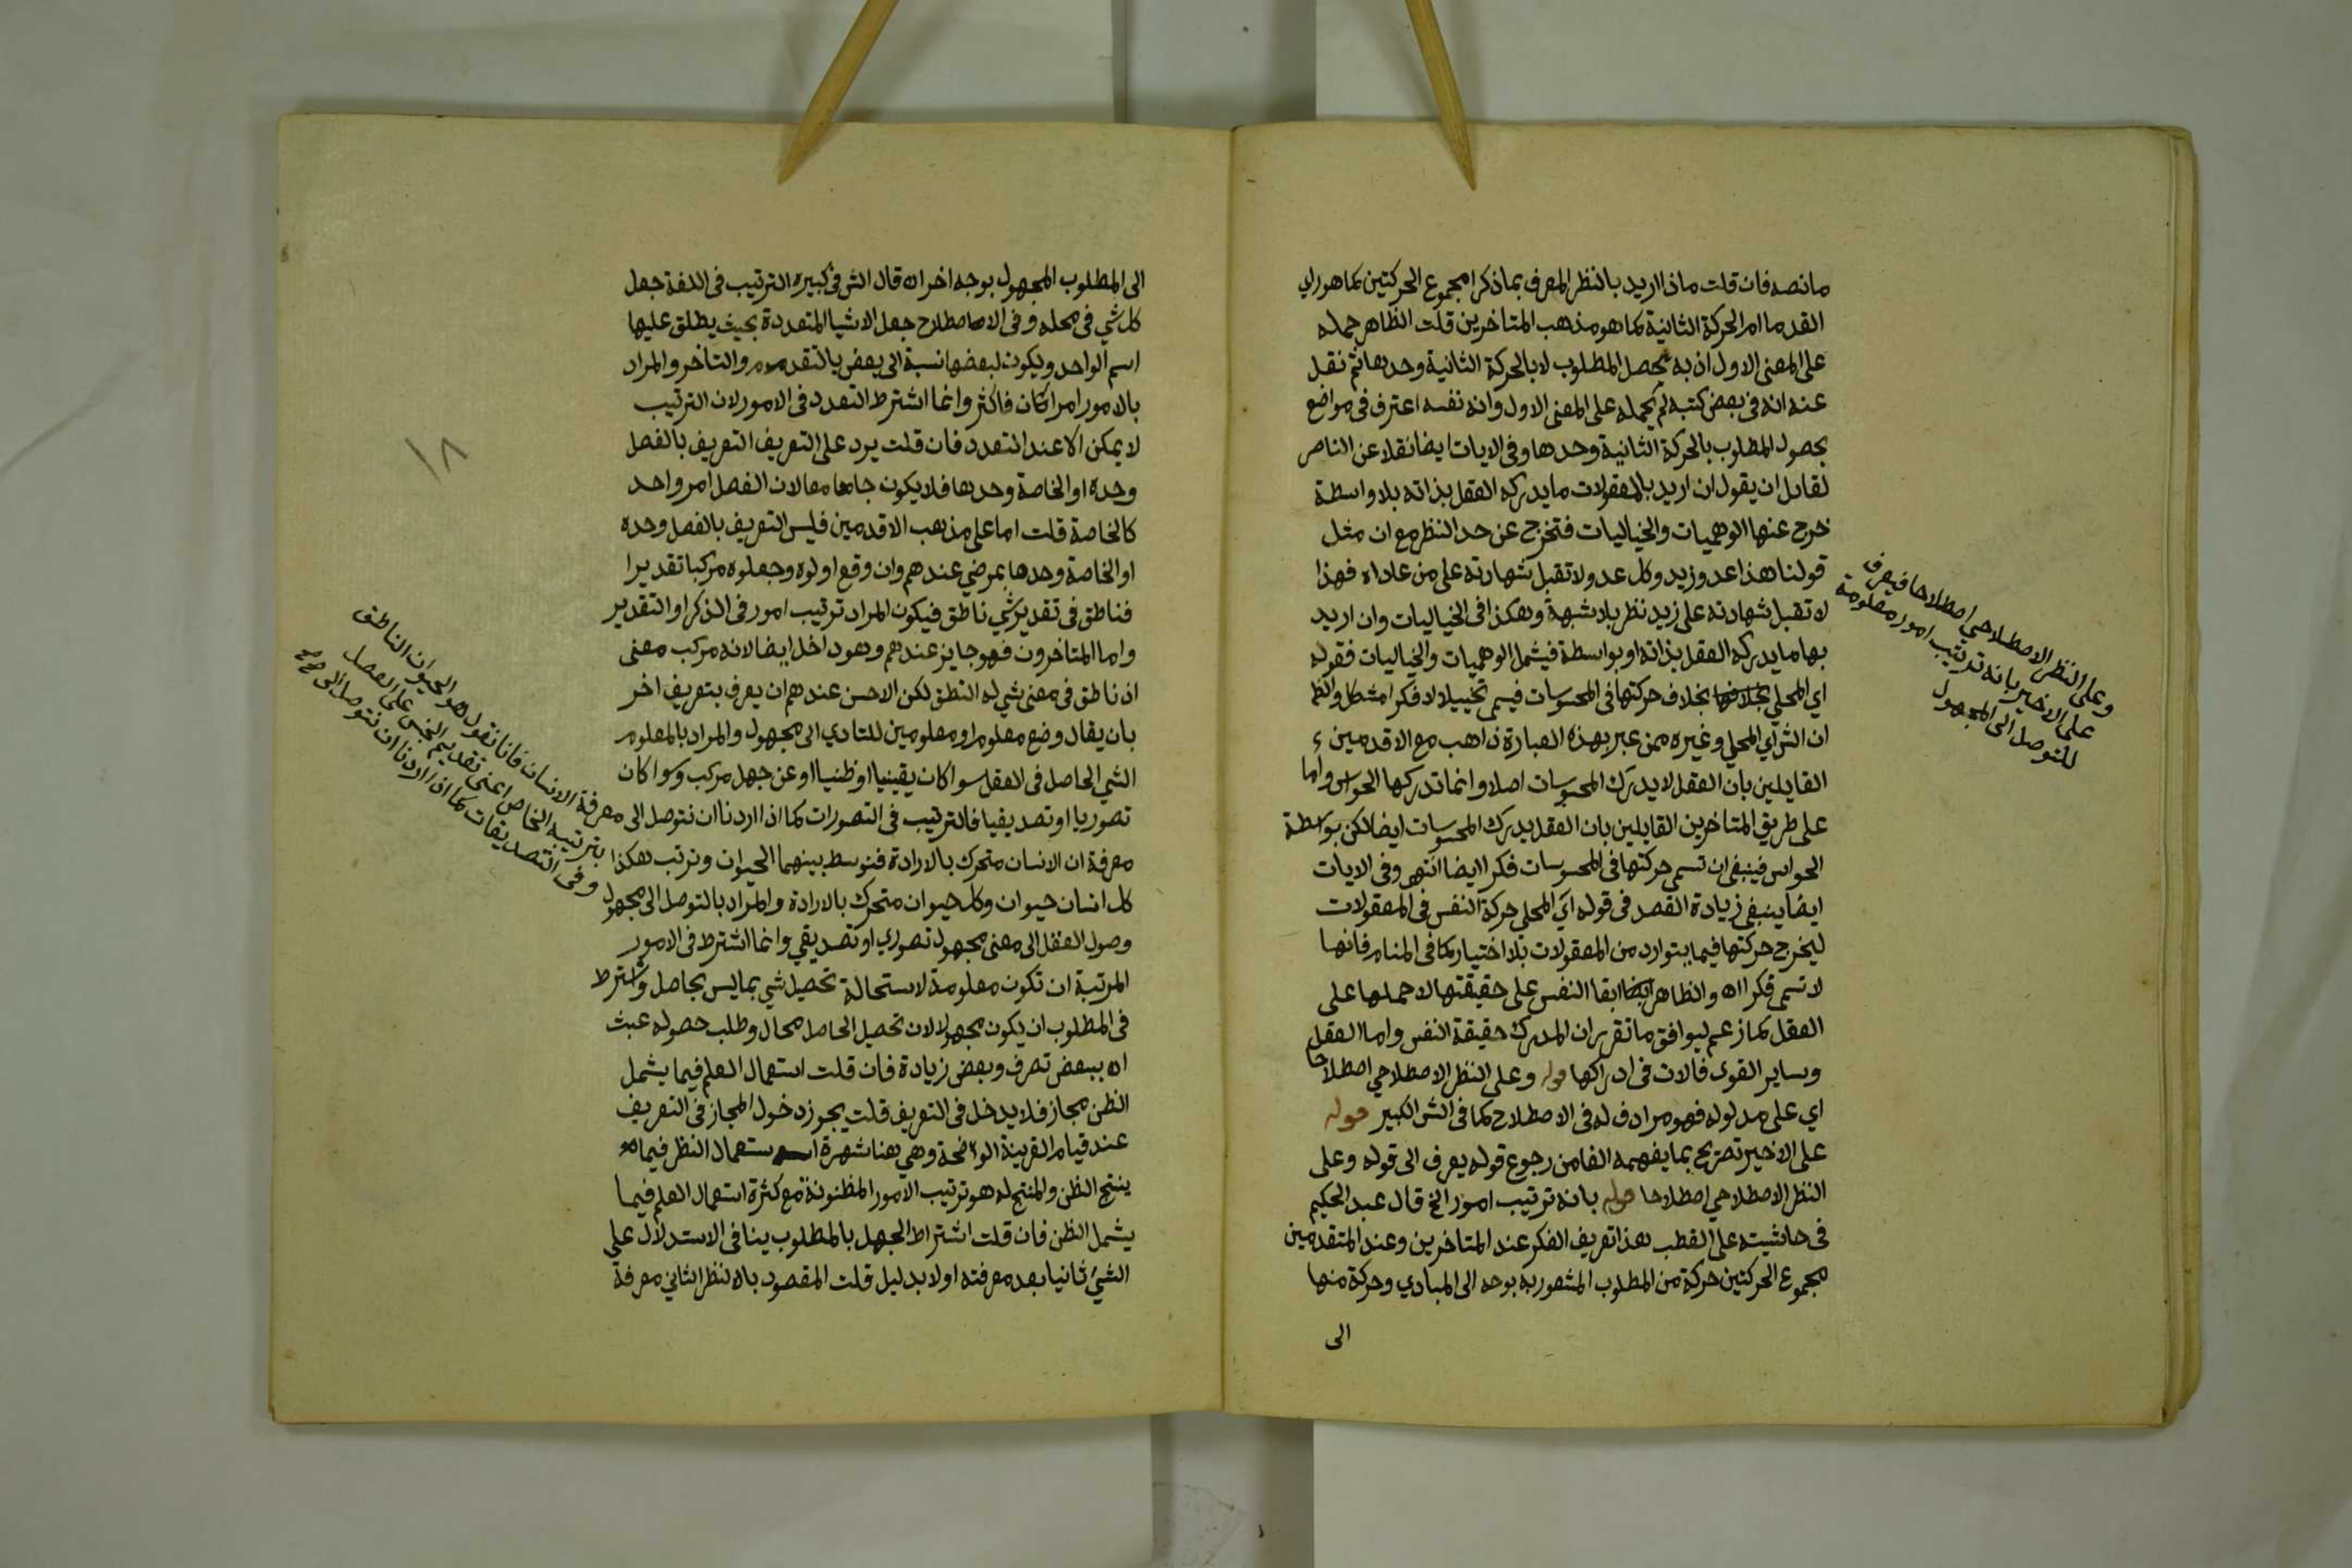 مانصه فان قلت ماذا اريد بالنظر المعرف بما ذكر امجموع الحركتين كما هو راي
القدما ام الحركة الثانية كما هو مذهب المتاخرين قلت الظاهر حمله
على المعنى الاول اذ به يحصل المطلوب لا بالحركة الثانية وحدها ثم نقل
عنه انه في بعض كتبه لم يحمله على المعنى الاول وانه نفسه اعترف في مواضع
بحصول المطلوب بالحركة الثانية وحدها وفي الايات ايضا نقلا عن الناصر
لقايل ان يقول ان اريد بالمعقولات ما يدركه العقل بذاته بلا واسطة
خرج عنها الوهميات والخياليات فتخرج عن حد النظر مع ان مثل
قولنا هذا عدو زيد وكل عدو لا تقبل شهادته على من عاداه فهذا
لا تقبل شهادته على زيد نظر بلا شبهة وهكذا في الخياليات وان اريد
بها ما يدركه العقل بذاته او بواسطة فيشمل الوهميات والخياليات فقوله
اي المحلي بخلاف حركتها في المحسوسات فيسمى تخييلا لا فكرا مشكل والظ
ان الش اي المحلي وغيره ممن عبر بهذه العبارة ذاهب مع الاقدمين
القايلين بان العقل لا يدرك المحسوسات اصلا وانما تدركها الحواس واما
على طريق المتاخرين القايلين بان العقل يدرك المحسوسات ايضا لكن بواسطة
الحواس فينبغي ان تسمى حركتها في المحسوسات فكرا ايضا انتهى وفي الايات
ايضا ينبغي زيادة القصد في قوله اي المحلي حركة النفس في المعقولات
ليخرج حركتها فيما يتوارد من المعقولات بلا اختيار كما في المنام فانها
لا تسمى فكرا اه والظاهر ابقا النفس على حقيقتها لا حملها على
العقل كما زعم ليوافق ما تقرر ان المدرك حقيقة النفس واما العقل
وساير القوى فالات في ادراكها قوله وعلى النظر الاصطلاحي اصطلاحا
اي على مدلوله فهو مرادف له في الاصطلاح كما في الش الكبير قوله
على الاخير تصريح بما يفهمه الفا من رجوع قوله يعرف الى قوله وعلى
النظر الاصطلاحي اصطلاحا قوله بانه ترتيب امور الخ قال عبد الحكيم
في حاشيته على القطب هذا تعريف الفكر عند المتاخرين وعند المتقدمين
مجموع الحركتين حركة من المطلوب المشعور به بوجه الى المبادي وحركة منها
الى
وعلى النظر الاصطلاحي اصطلاحا فيعرف
على الاخير بانه ترتيب امور معلومة
للتوصل الى المجهول
الى المطلوب المجهول بوجه اخر اه قال الش في كبيره الترتيب في اللغة جعل
كل شي في محله وفي الاصطلاح جعل الاشيا المتعددة بحيث يطلق عليها
اسم الواحد ويكون لبعضها نسبة الى بعض بالتقدم والتاخر والمراد
بالامور امران فاكثر وانما اشترط التعدد في الامور لان الترتيب
لا يمكن الا عند التعدد فان قلت يرد على التعريف التعريف بالفصل
وحده او الخاصة وحدها فلا يكون جامعا لان الفصل امر واحد
كالخاصة قلت اما على مذهب الاقدمين فليس التعريف بالفصل وحده
او الخاصة وحدها بمرضي عندهم وان وقع اولوه وجعلوه مركبا تقديرا
فناطق في تقدير شي ناطق فيكون المراد ترتيب امور في الذكر او التقدير
واما المتاخرون فهو جايز عندهم وهو داخل ايضا لانه مركب معنى
اذ ناطق في معنى شي له النطق لكن الاحسن عندهم ان يعرف بتعريف اخر
بان يقال وضع معلوم او معلومين للتادي الى مجهول والمراد بالمعلوم
الشي الحاصل في العقل سوا كان يقينيا او ظنيا او عن جهل مركب وسوا كان
تصوريا او تصديقيا فالترتيب في التصورات كما اذا اردنا ان نتوصل الى معرفة الانسان فانا نقول هو الحيوان الناطق
بترتيبه الخاص اعنى تقديم الجنس على الفصل
وفي التصديقات كما اذا اردنا ان نتوصل الى
معرفة ان الانسان متحرك بالارادة فنوسط بينهما الحيوان ونرتب هكذا
كل انسان حيوان وكل حيوان متحرك بالارادة والمراد بالتوصل الى مجهول
وصول العقل الى معنى مجهول تصوري او تصديقي وانما اشترط في الامور
المرتبة ان تكون معلومة لاستحالة تحصيل شي بما ليس بحاصل واشترط
في المطلوب ان يكون مجهولا لان تحصيل الحاصل محال وطلب حصوله عبث
اه ببعض تصرف وبعض زيادة فان قلت استعمال العلم فيما يشمل
الظن مجاز فلا يدخل في التعريف قلت يجوز دخول المجاز في التعريف
عند قيام القرينة الواضحة وهي هنا شهرة استعمال النظر فيما
ينتج الظن والمنتج له هو ترتيب الامور المظنونة مع كثرة استعمال العلم فيما
يشمل الظن فان قلت اشتراط الجهل بالمطلوب ينافي الاستدلال على
الشيء ثانيا بعد معرفته اولا بدليل قلت المقصود بالنظر الثاني معرفة
١٨